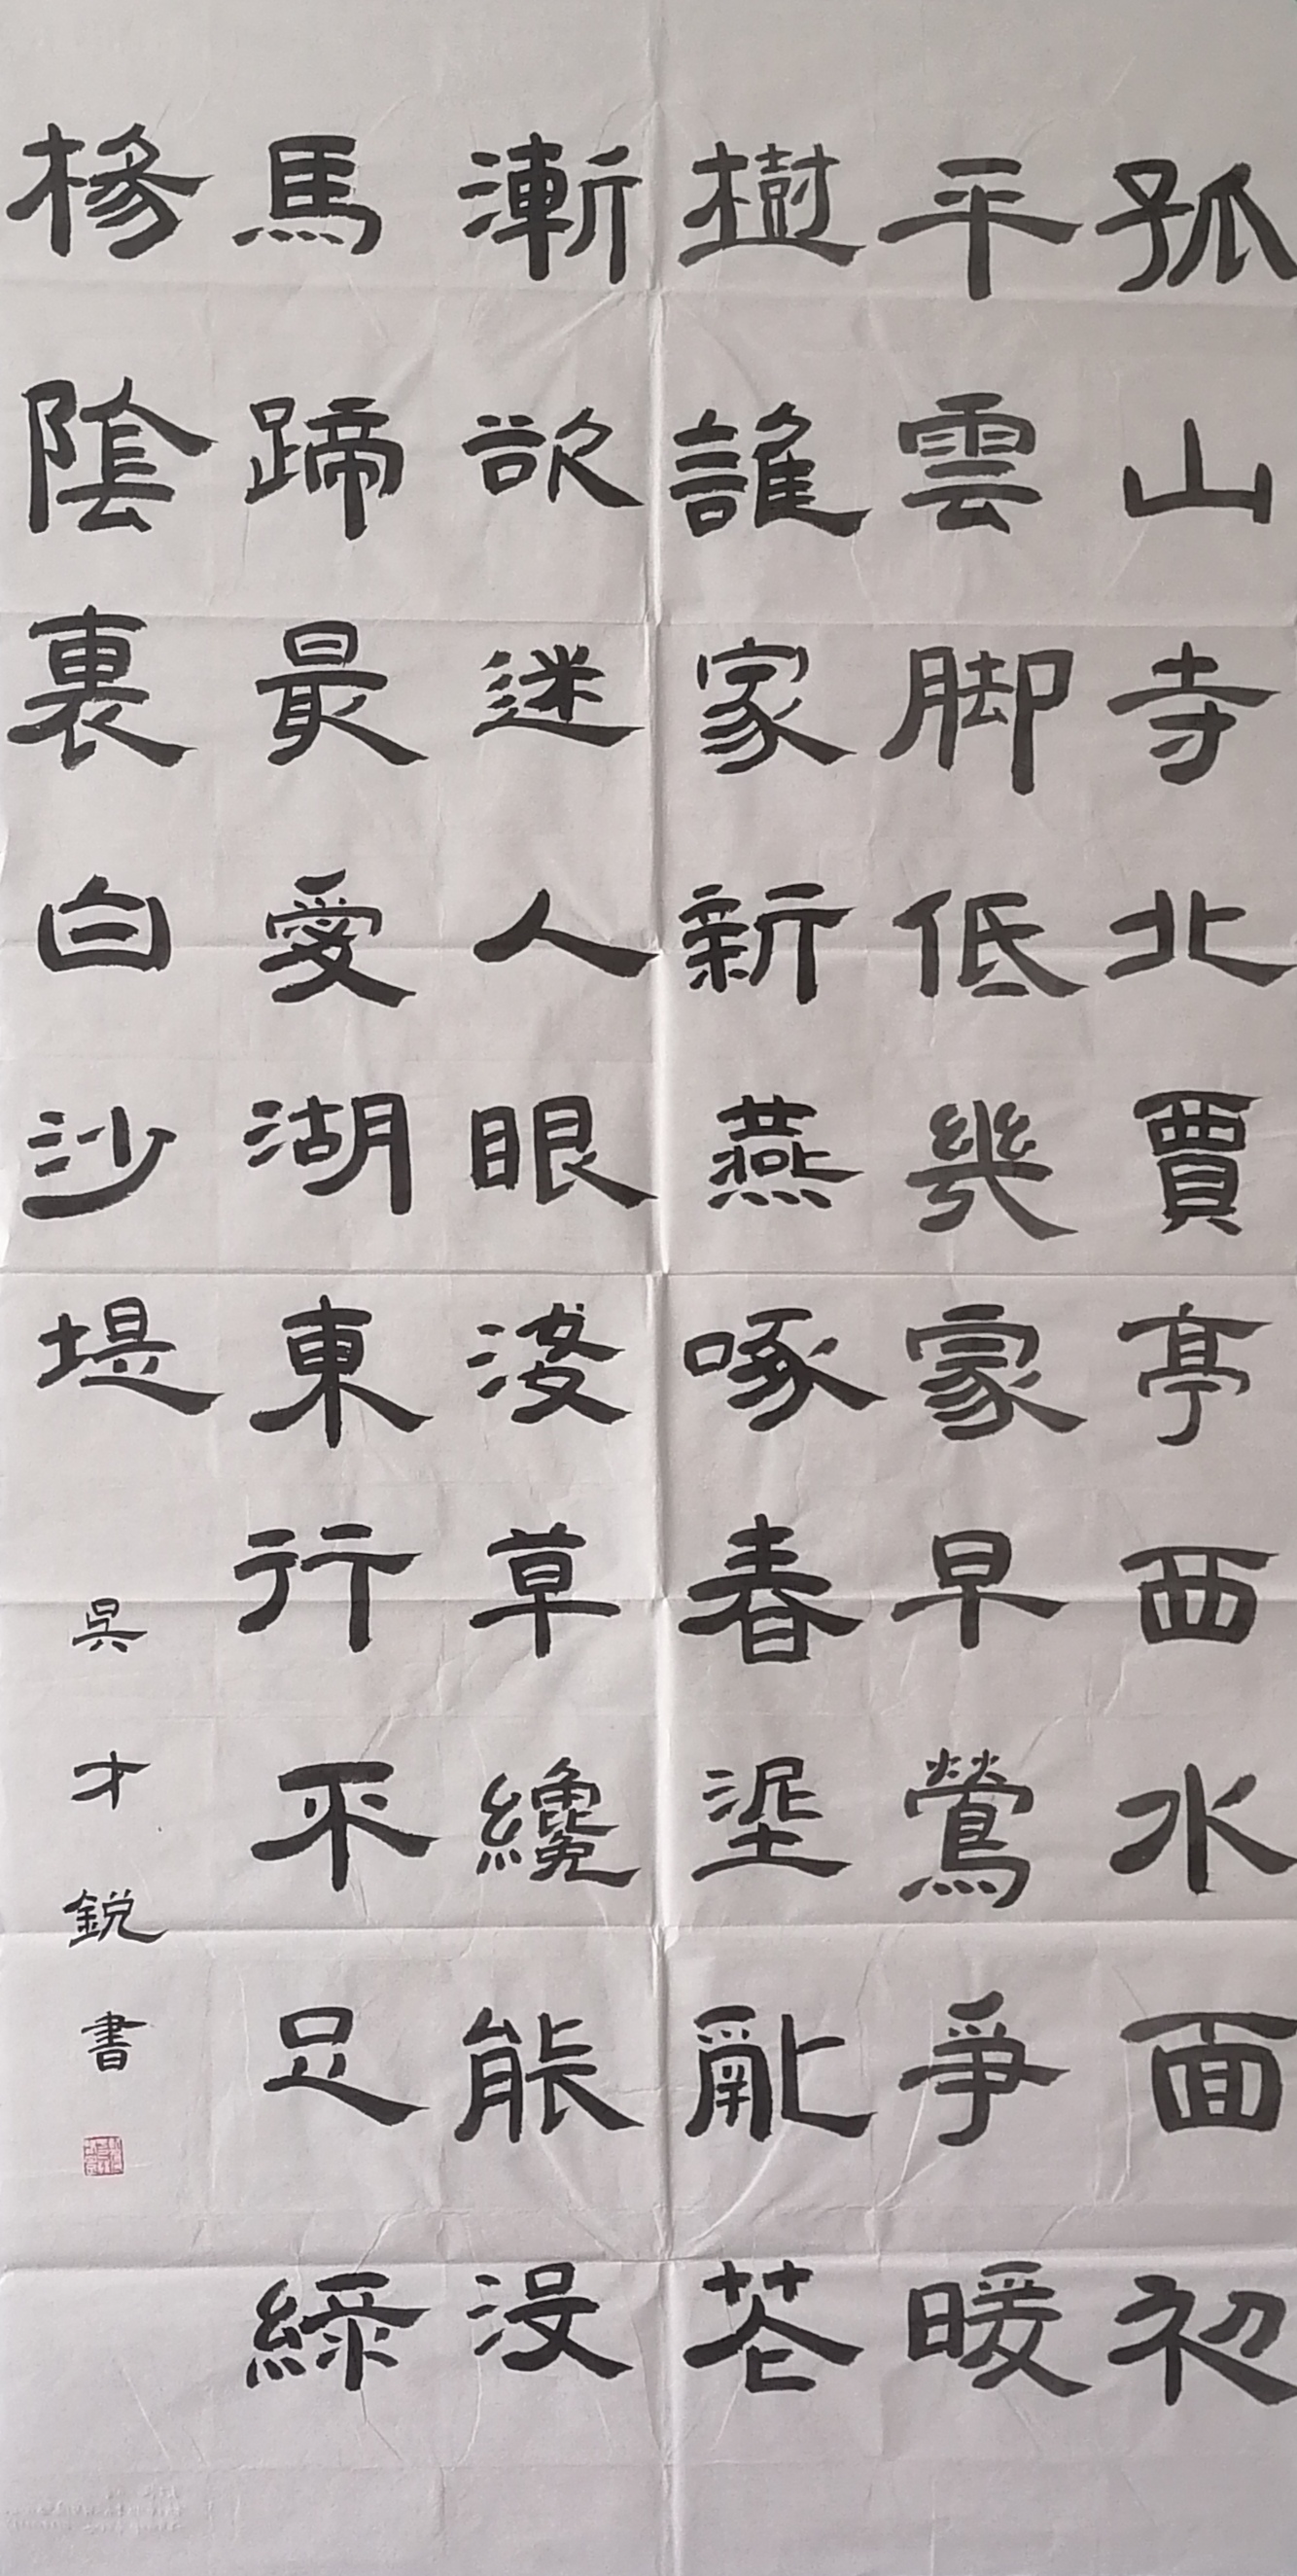 孤山寺北賈亭西水面初
平雲脚低幾家早鶯爭暖
樹誰家新燕啄春埿亂花
漸欲迷人眼淺草纔能没
馬蹄最愛湖東行不足綠
楊陰裏白沙堤
吳才銳書